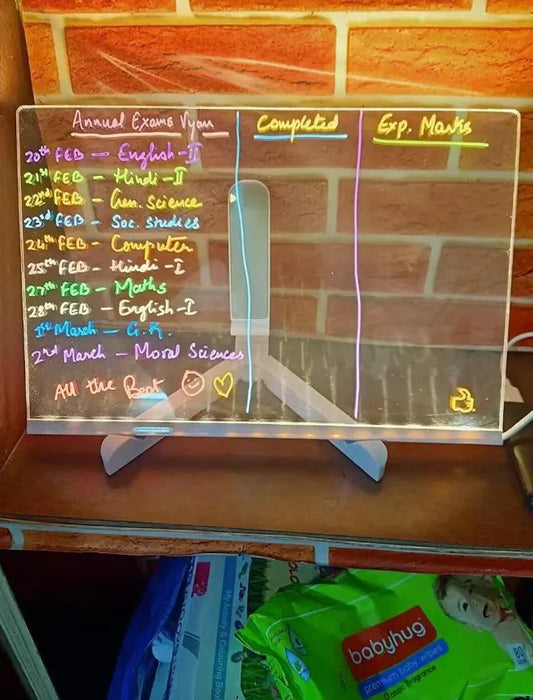 Annual Exams Vyan
Completed
Exp. Marks
20th FEB - English-II
21st FEB - Hindi-II
22nd FEB - Gen. Science
23rd FEB - Soc. studies
24th FEB - Computer
25th FEB - Hindi-I
27th FEB - Maths
28th FEB - English-I
1st March - G.K.
2nd March - Moral Sciences
All the Best
babyhug
premium baby wipes
My Activity & Colouring Book
80